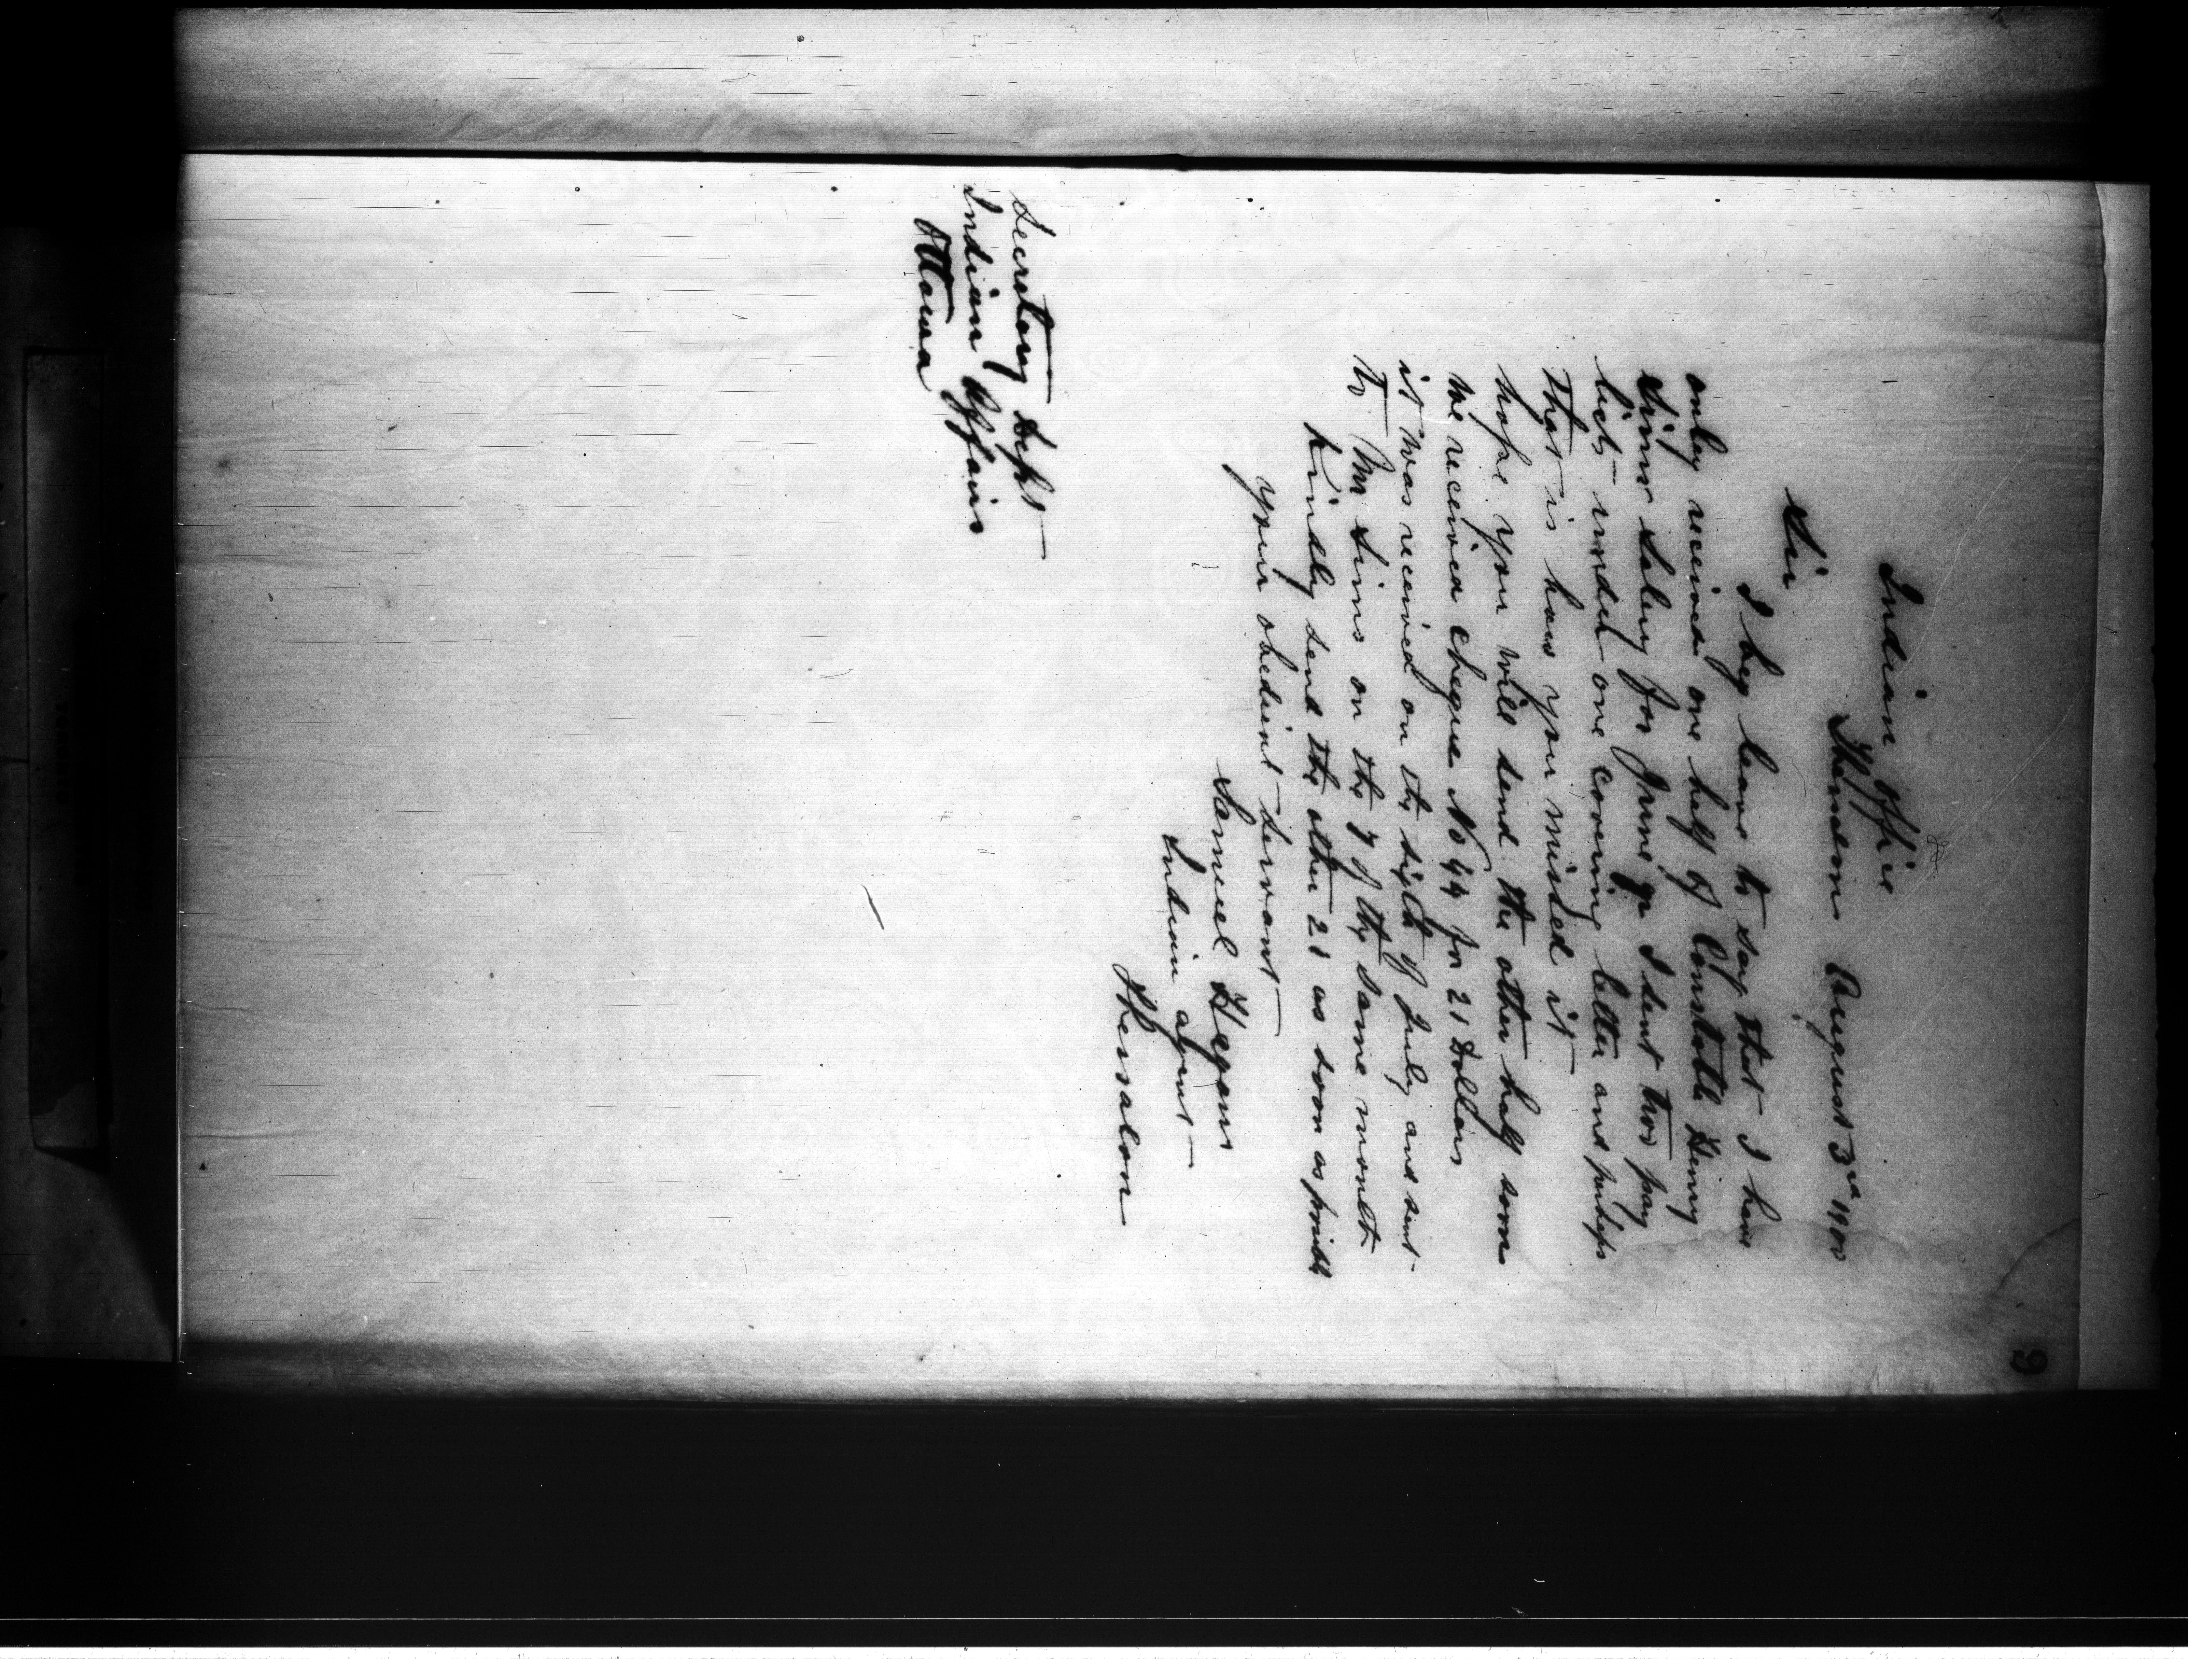 9
Indian Office
Thessalon August 3rd 1900
Sir
I beg leave to say that I have
only received one half of Constable Henry
Sims Salery for June I sent two pay
lists under one covering letter and perhaps
that is how you missed it
hope you will send the other half soon
We received cheque No 44 for 21 Dollars
it was received on the sixth of July and sent
to Mr Sims on the 7 of the same month
Kindly send the other 21 as soon as possible
your obedient servant
Samuel Hagan
Indian agent
Thessalon
Secretary Dept
Indian Affairs
Ottawa